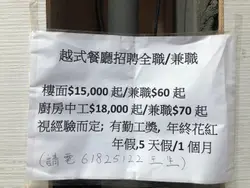 越式餐廳招聘全職/兼職
樓面$15,000 起/兼職$60 起
廚房中工$18,000 起/兼職$70 起
視經驗而定; 有勤工獎, 年終花紅
年假,5 天假/1 個月
(請電 61825122 王生)